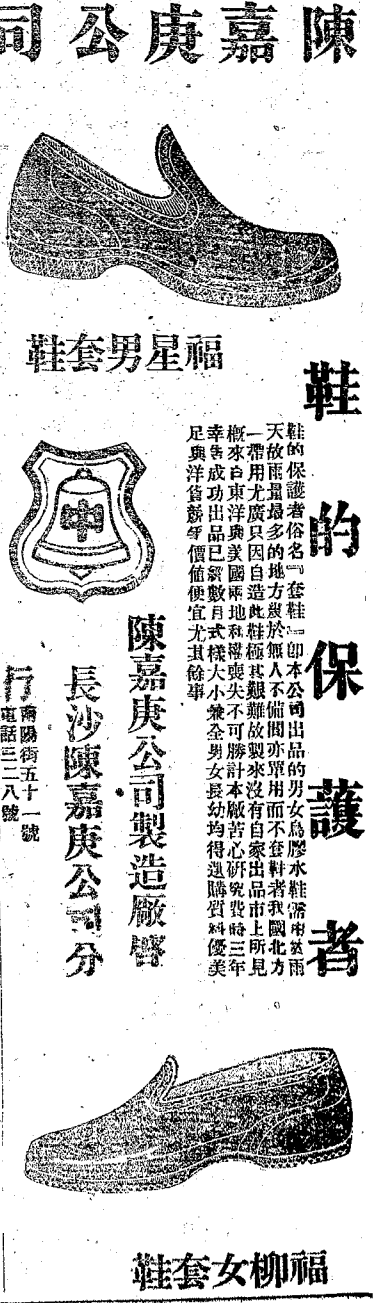 陳嘉庚公司
福星男套鞋
鞋的保護者
鞋的保護者俗名『套鞋』卽本公司出品的男女烏膠水鞋
天故雨量最多的地方幾於無人不備間亦單用而不套鞋者我國北方
一帶用尤廣只因自造此鞋極其艱難故製來沒有自家出品市上所見
槪來自東洋與美國兩地利權喪失不可勝計本廠苦心硏究費時三年
幸告成功出品已經數月式樣大小兼全男女長幼均得選購質料優美
足與洋貨競爭價値便宜尤其餘事
中
陳嘉庚公司製造廠啓
長沙陳嘉庚公司分
行
南陽街五十一號
電話三二八號
福柳女套鞋